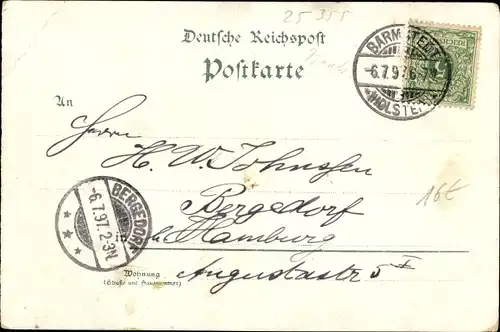 25 355
Deutsche Reichspost
Postkarte
BARMSTEDT
6.7.97. 6-7N
*(HOLSTEIN)*
An
Herrn
H. W. Johnssen
Bergedorf
in bei Hamburg
BERGEDORF
-6.7.97. 2-3N
16€
Wohnung
(Straße und Hausnummer)
Augustastr 5 I